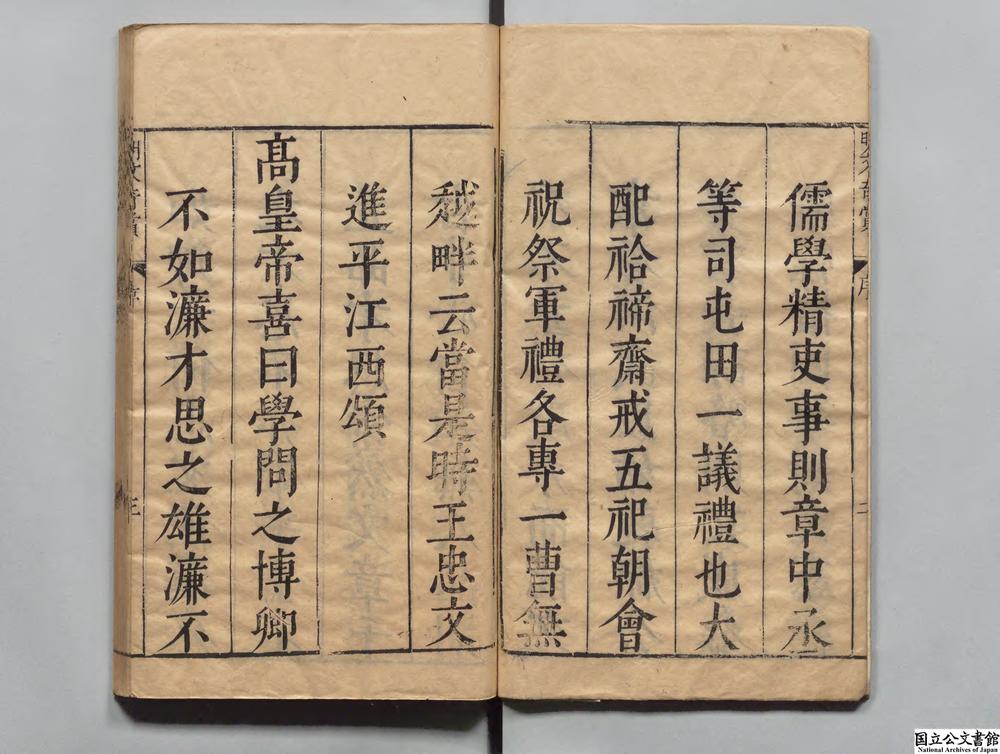 儒學精吏事則章中丞
等司屯田一議禮也大
配祫禘齋戒五祀朝會
祝祭軍禮各專一曹無
越畔云當是時王忠文
進平江西頌
髙皇帝喜曰學問之博卿
不如濂才思之雄濂不
序
三
国立公文書館
National Archives of Japan